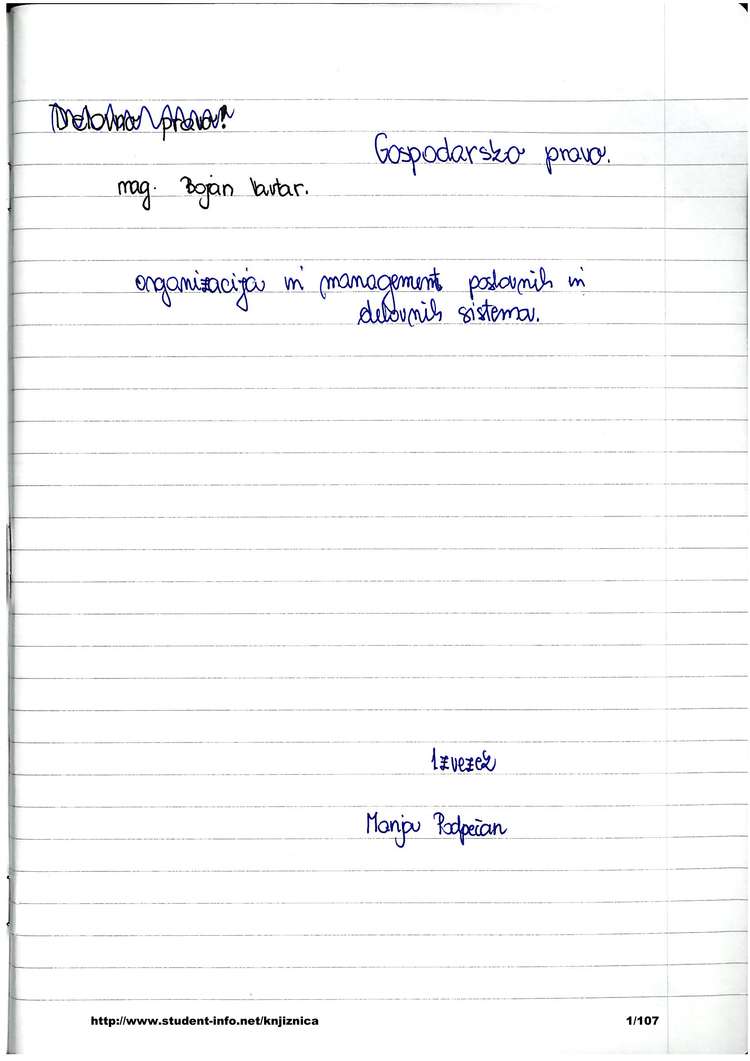 Delovno pravo!
Gospodarsko pravo.
mag. Bojan
organizacija in management poslovnih in
delovnih sistemov.
1 zvezek
Manja Podpečan
http://www.student-info.net/knjiznica
1/107